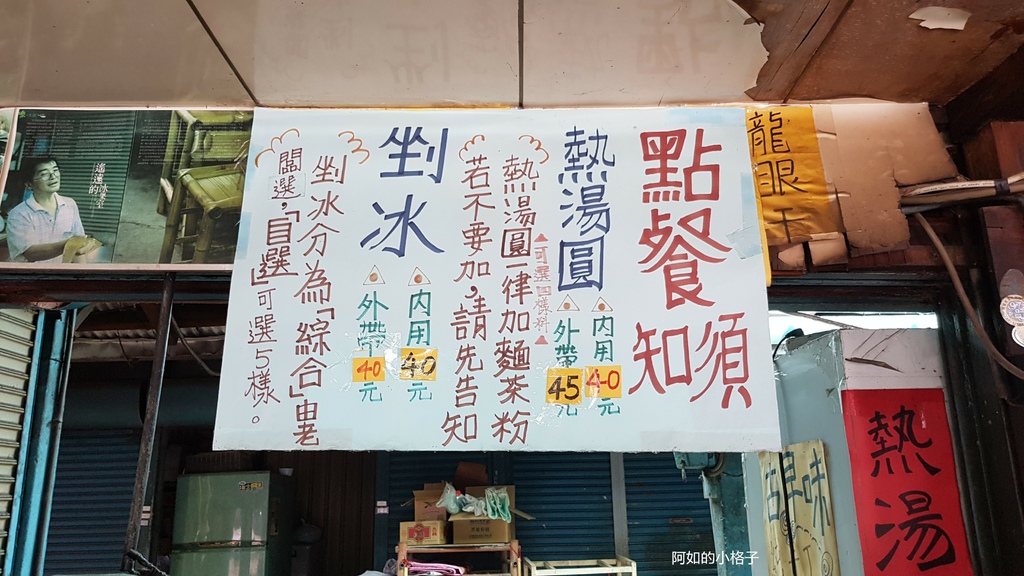 點餐
須知
熱湯圓
內用
40
元
外帶
45
元
熱湯圓一律加麵茶粉
若不要加,請先告知
剉冰
內用
40
元
外帶
40
元
剉冰分為「綜合」由老
闆選,「自選」可選5樣。
龍眼
熱湯
阿如的小格子